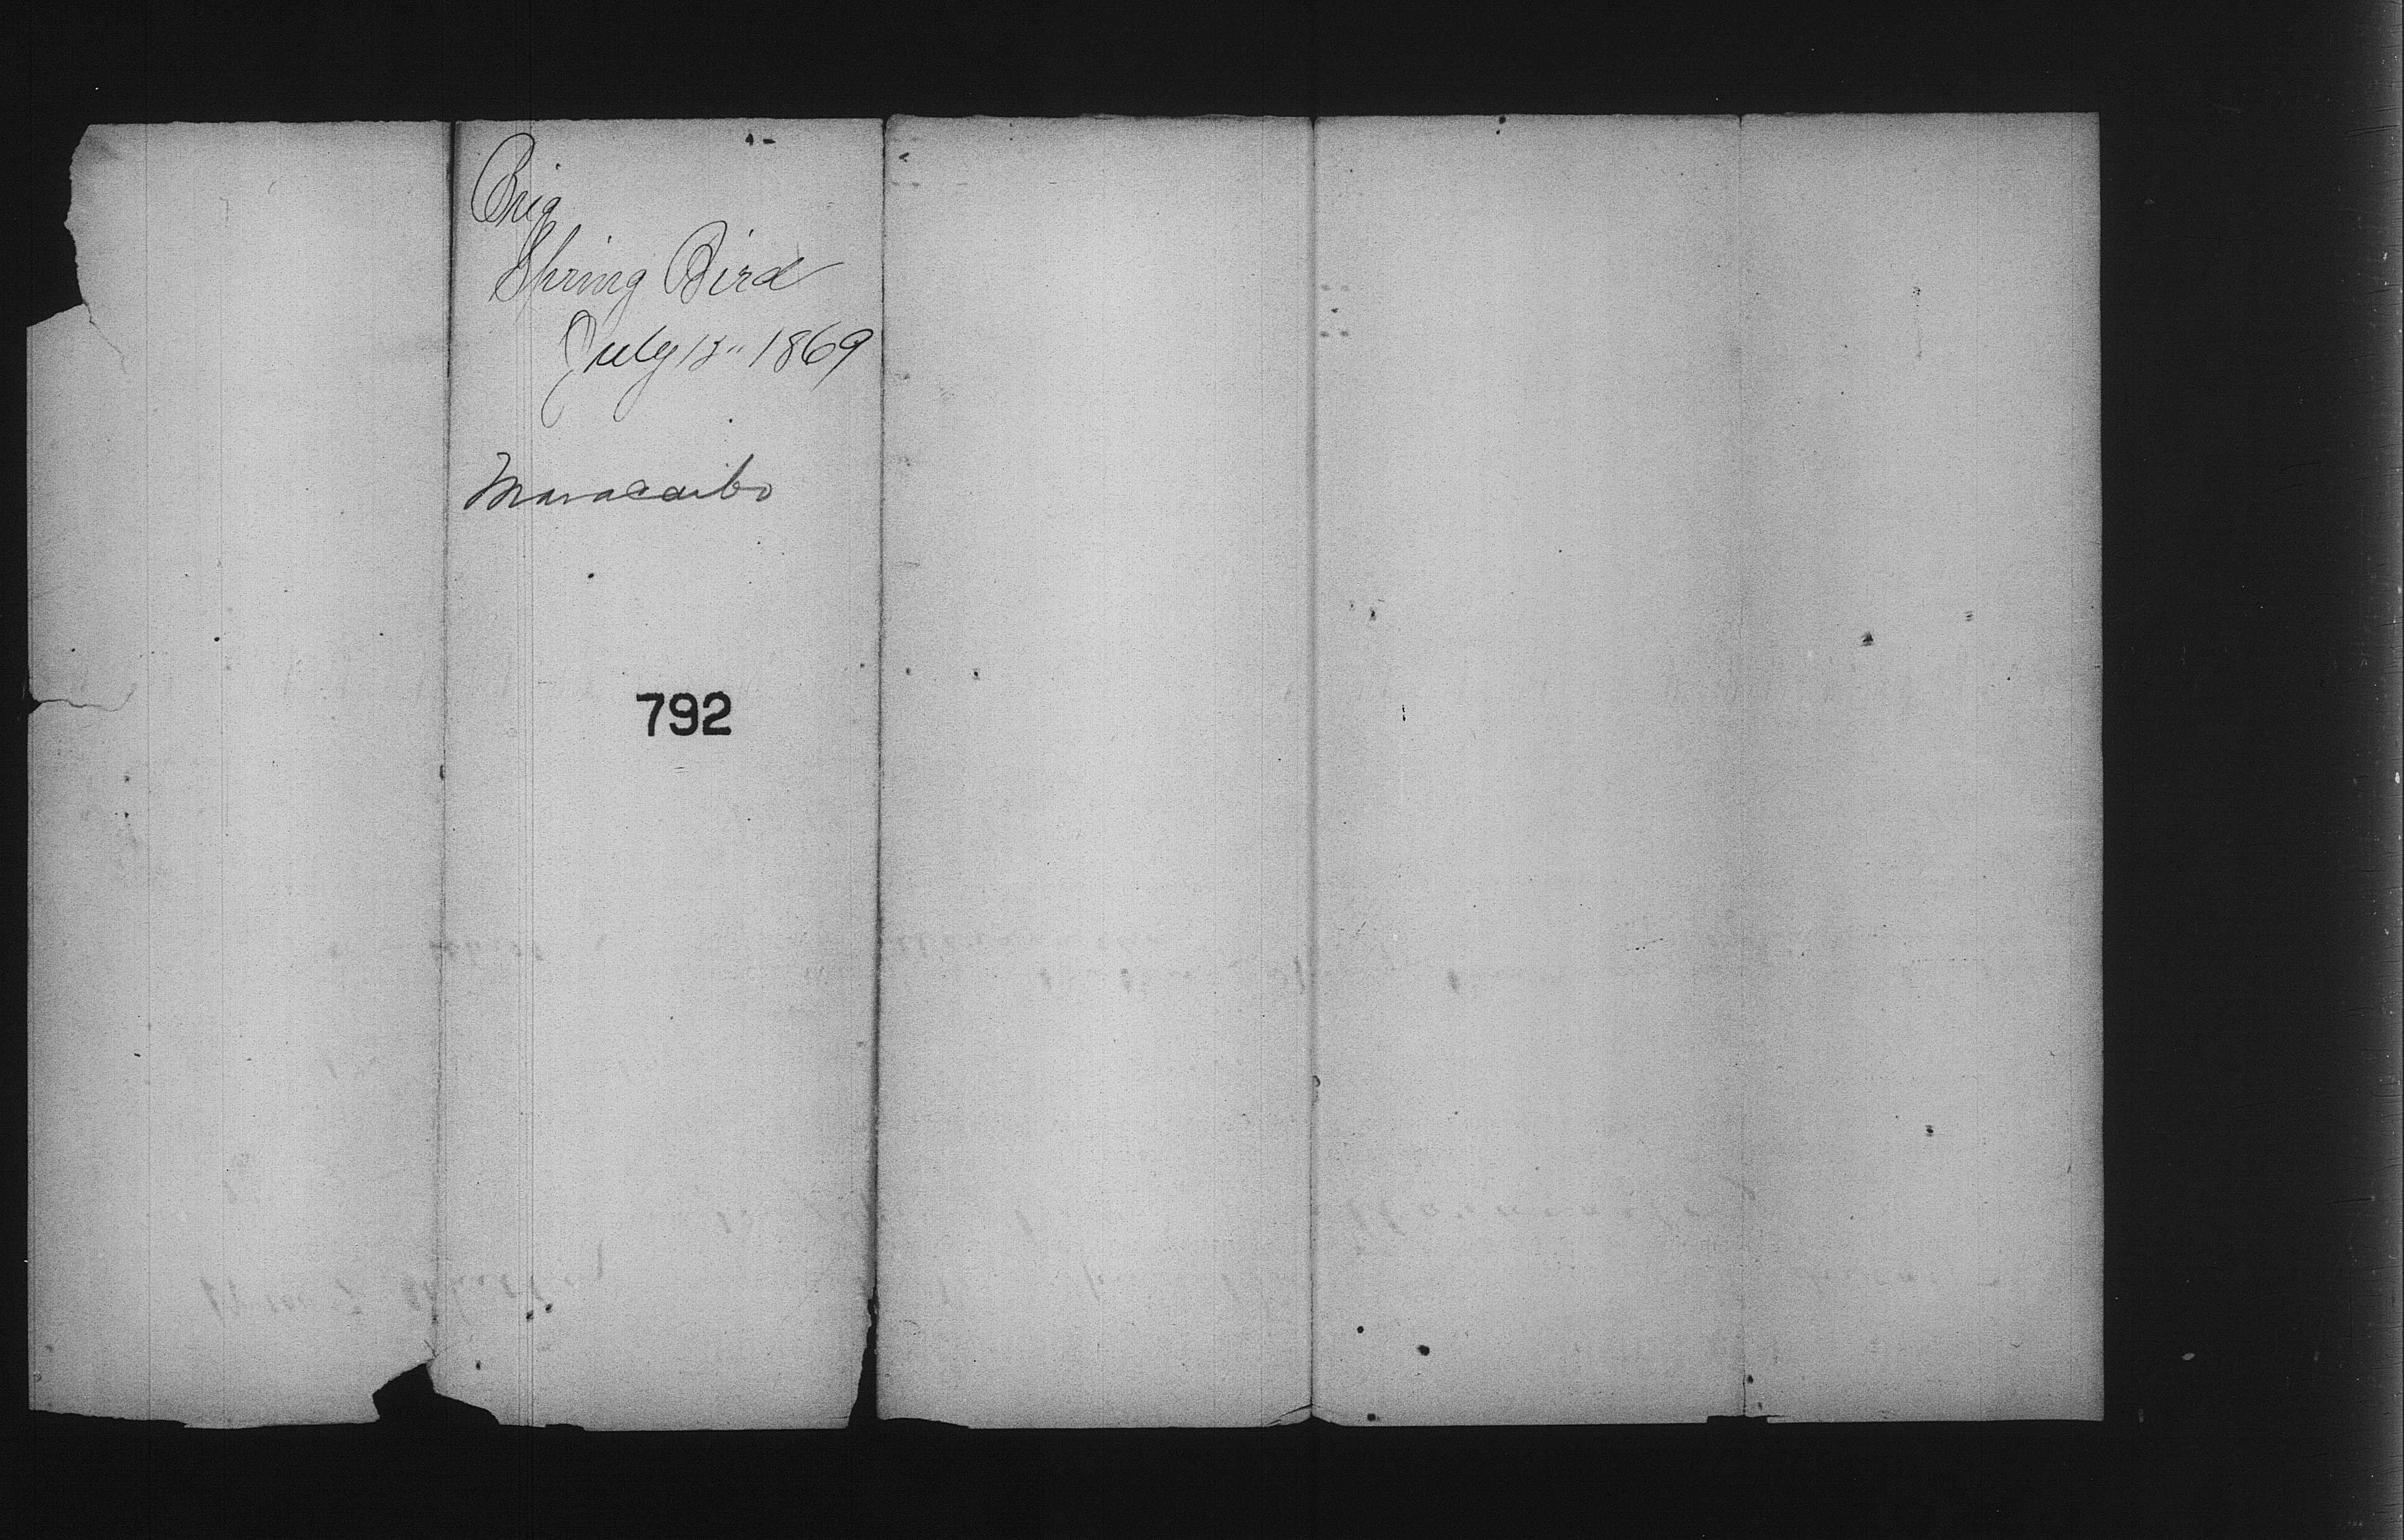 Brig
Spring Bird
July 13" 1869
Maracaibo
792